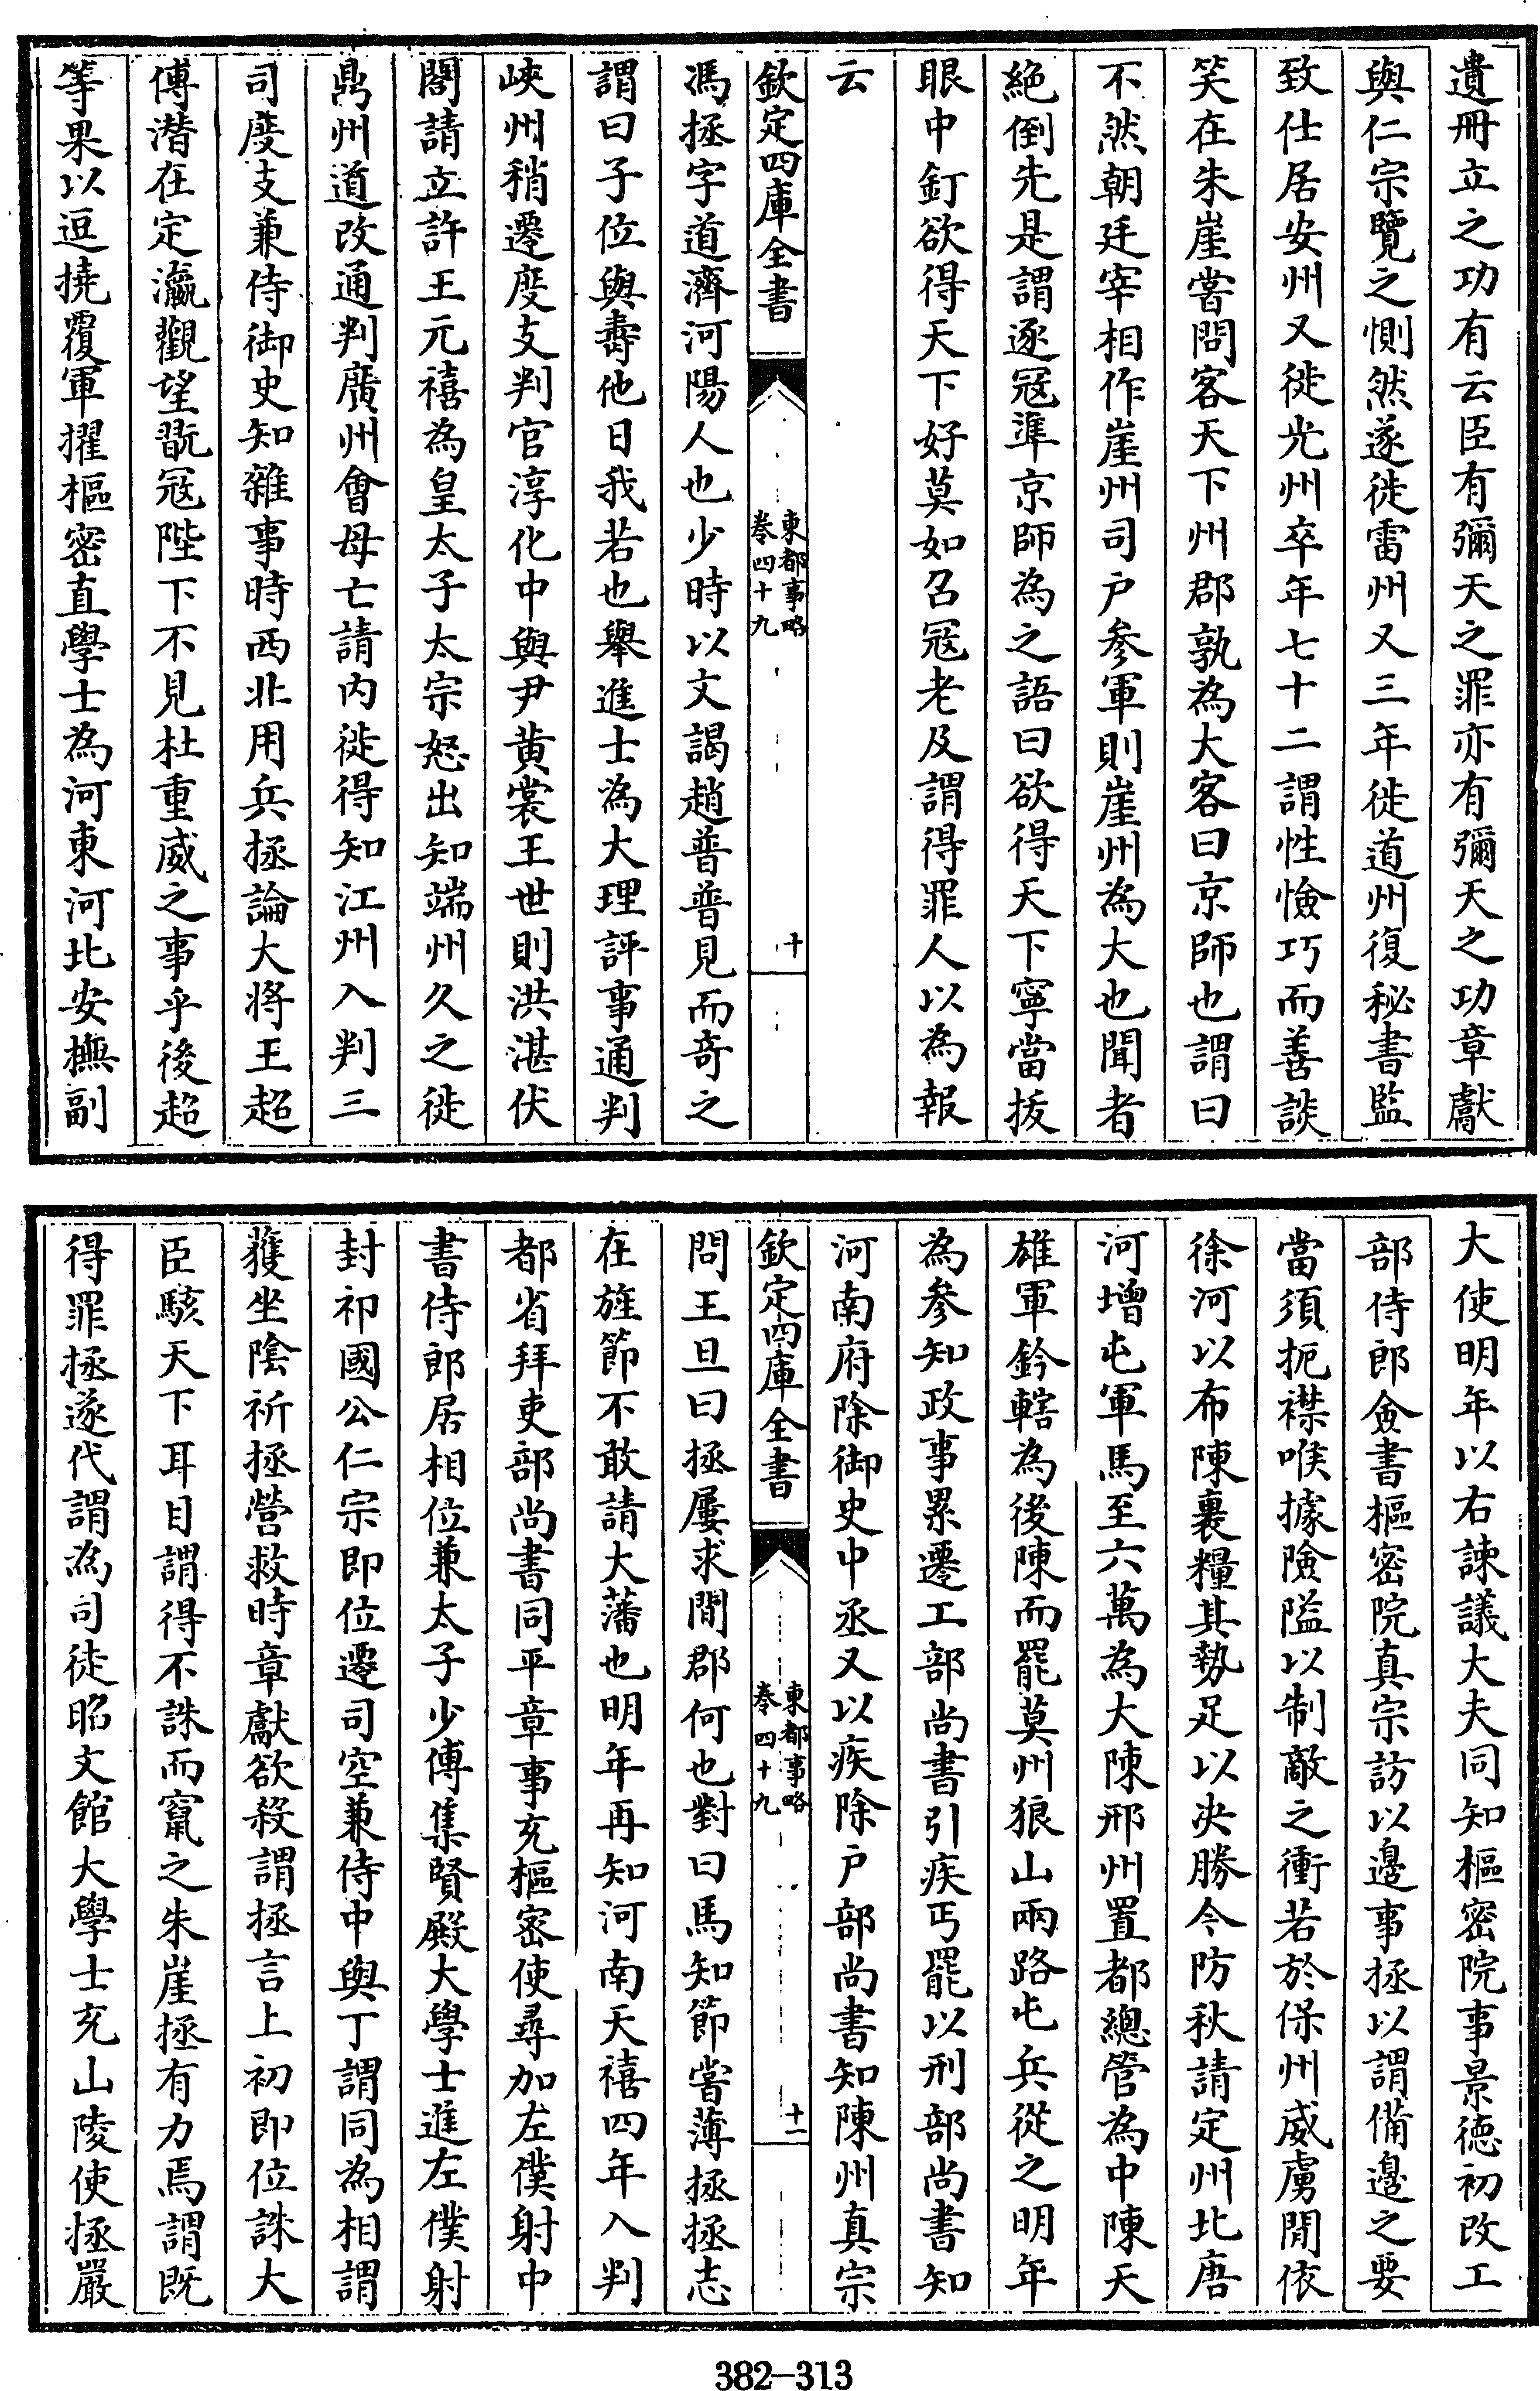 遺冊立之功有云臣有彌天之罪亦有彌天之功章獻
與仁宗覽之惻然遂徙雷州又三年徙道州復秘書監
致仕居安州又徙光州卒年七十二謂性憸巧而善談
笑在朱崖嘗問客天下州郡孰為大客曰京師也謂曰
不然朝廷宰相作崖州司戶參軍則崖州為大也聞者
絶倒先是謂逐寇準京師為之語曰欲得天下寧當拔
眼中釘欲得天下好莫如召寇老及謂得罪人以為報
云
欽定四庫全書
東都事略
卷四十九
十
馮拯字道濟河陽人也少時以文謁趙普普見而奇之
謂曰子位與壽他日我若也舉進士為大理評事通判
峽州稍遷度支判官淳化中與尹黄裳王世則洪湛伏
閤請立許王元禧為皇太子太宗怒出知端州久之徙
鼎州道改通判廣州會母亡請内徙得知江州入判三
司度支兼侍御史知雜事時西北用兵拯論大將王超
傅潛在定瀛觀望翫寇陛下不見杜重威之事乎後超
等果以逗撓覆軍擢樞密直學士為河東河北安撫副
大使明年以右諫議大夫同知樞密院事景德初改工
部侍郎僉書樞密院真宗訪以邊事拯以謂備邊之要
當須扼襟喉據險隘以制敵之衝若於保州威虜閒依
徐河以布陳裹糧其勢足以决勝今防秋請定州北唐
河增屯軍馬至六萬為大陳邢州置都總管為中陳天
雄軍鈐轄為後陳而罷莫州狼山兩路屯兵從之明年
為參知政事累遷工部尚書引疾丐罷以刑部尚書知
河南府除御史中丞又以疾除戶部尚書知陳州真宗
欽定四庫全書
東都事略
卷四十九
十一
問王旦曰拯屢求閒郡何也對曰馬知節嘗薄拯拯志
在旌節不敢請大藩也明年再知河南天禧四年入判
都省拜吏部尚書同平章事充樞密使尋加左僕射中
書侍郎居相位兼太子少傅集賢殿大學士進左僕射
封祁國公仁宗即位遷司空兼侍中與丁謂同為相謂
獲坐隂祈拯營救時章獻欲殺謂拯言上初即位誅大
臣駭天下耳目謂得不誅而竄之朱崖拯有力焉謂既
得罪拯遂代謂為司徒昭文館大學士充山陵使拯嚴
382-313